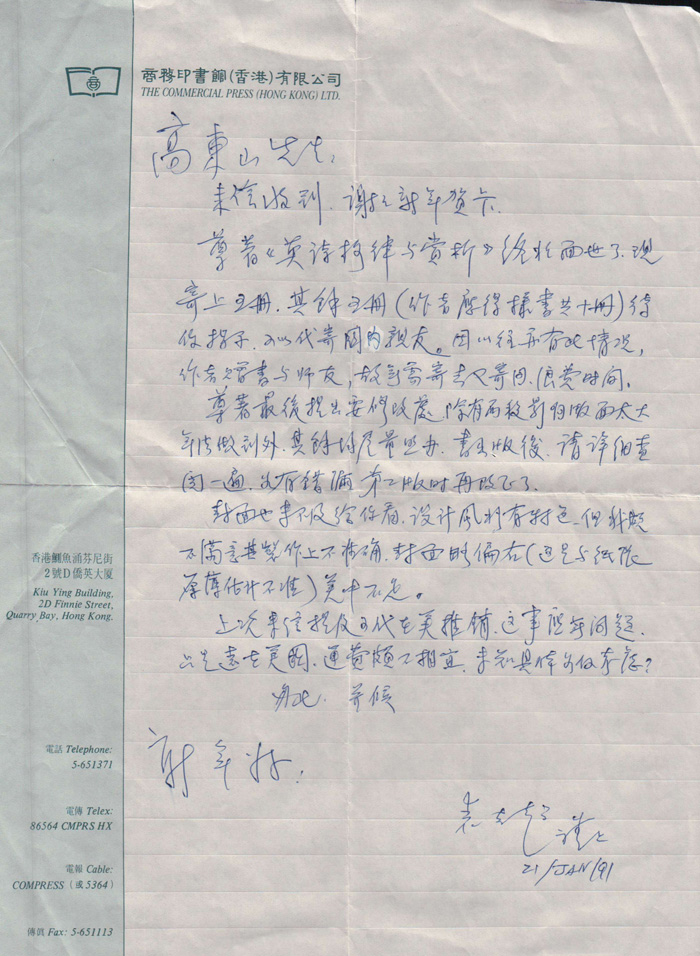 商務印書館(香港)有限公司
THE COMMERCIAL PRESS (HONG KONG) LTD.
高東山先生：
来信收到．谢谢新年贺卡．
尊著《英诗格律与赏析》终於面世了．现
寄上五册．其餘五册(作者应得樣書共十册)待
你指示．可以代寄國内親友。因以往再有此情况，
作者赠書与师友，故
寄去又寄回．浪費时间．
尊著最後提出要修改處，除有
法做到外．其餘均尽量照办．書出版後．请详细查
阅一遍．如有錯漏第二版时再改正了．
封面也来不及给你看．设计風格有特色．但我頗
不满意其製作上不准确．封面略偏右(这是与纸张
厚薄估计不准)美中不足。
上次来信提及可代在美推銷．这事应無问题．
只是远在美國．運費頗不相宜．未知具体如何
？
專此．并候
新年好．
謹上
21/JAN/91
香港鰂魚涌芬尼街
2號D僑英大廈
Kiu Ying Building,
2D Finnie Street,
Quarry Bay, Hong Kong.
電話 Telephone:
5-651371
電傳 Telex:
86564 CMPRS HX
電報 Cable:
COMPRESS (或5364)
傳眞 Fax: 5-651113